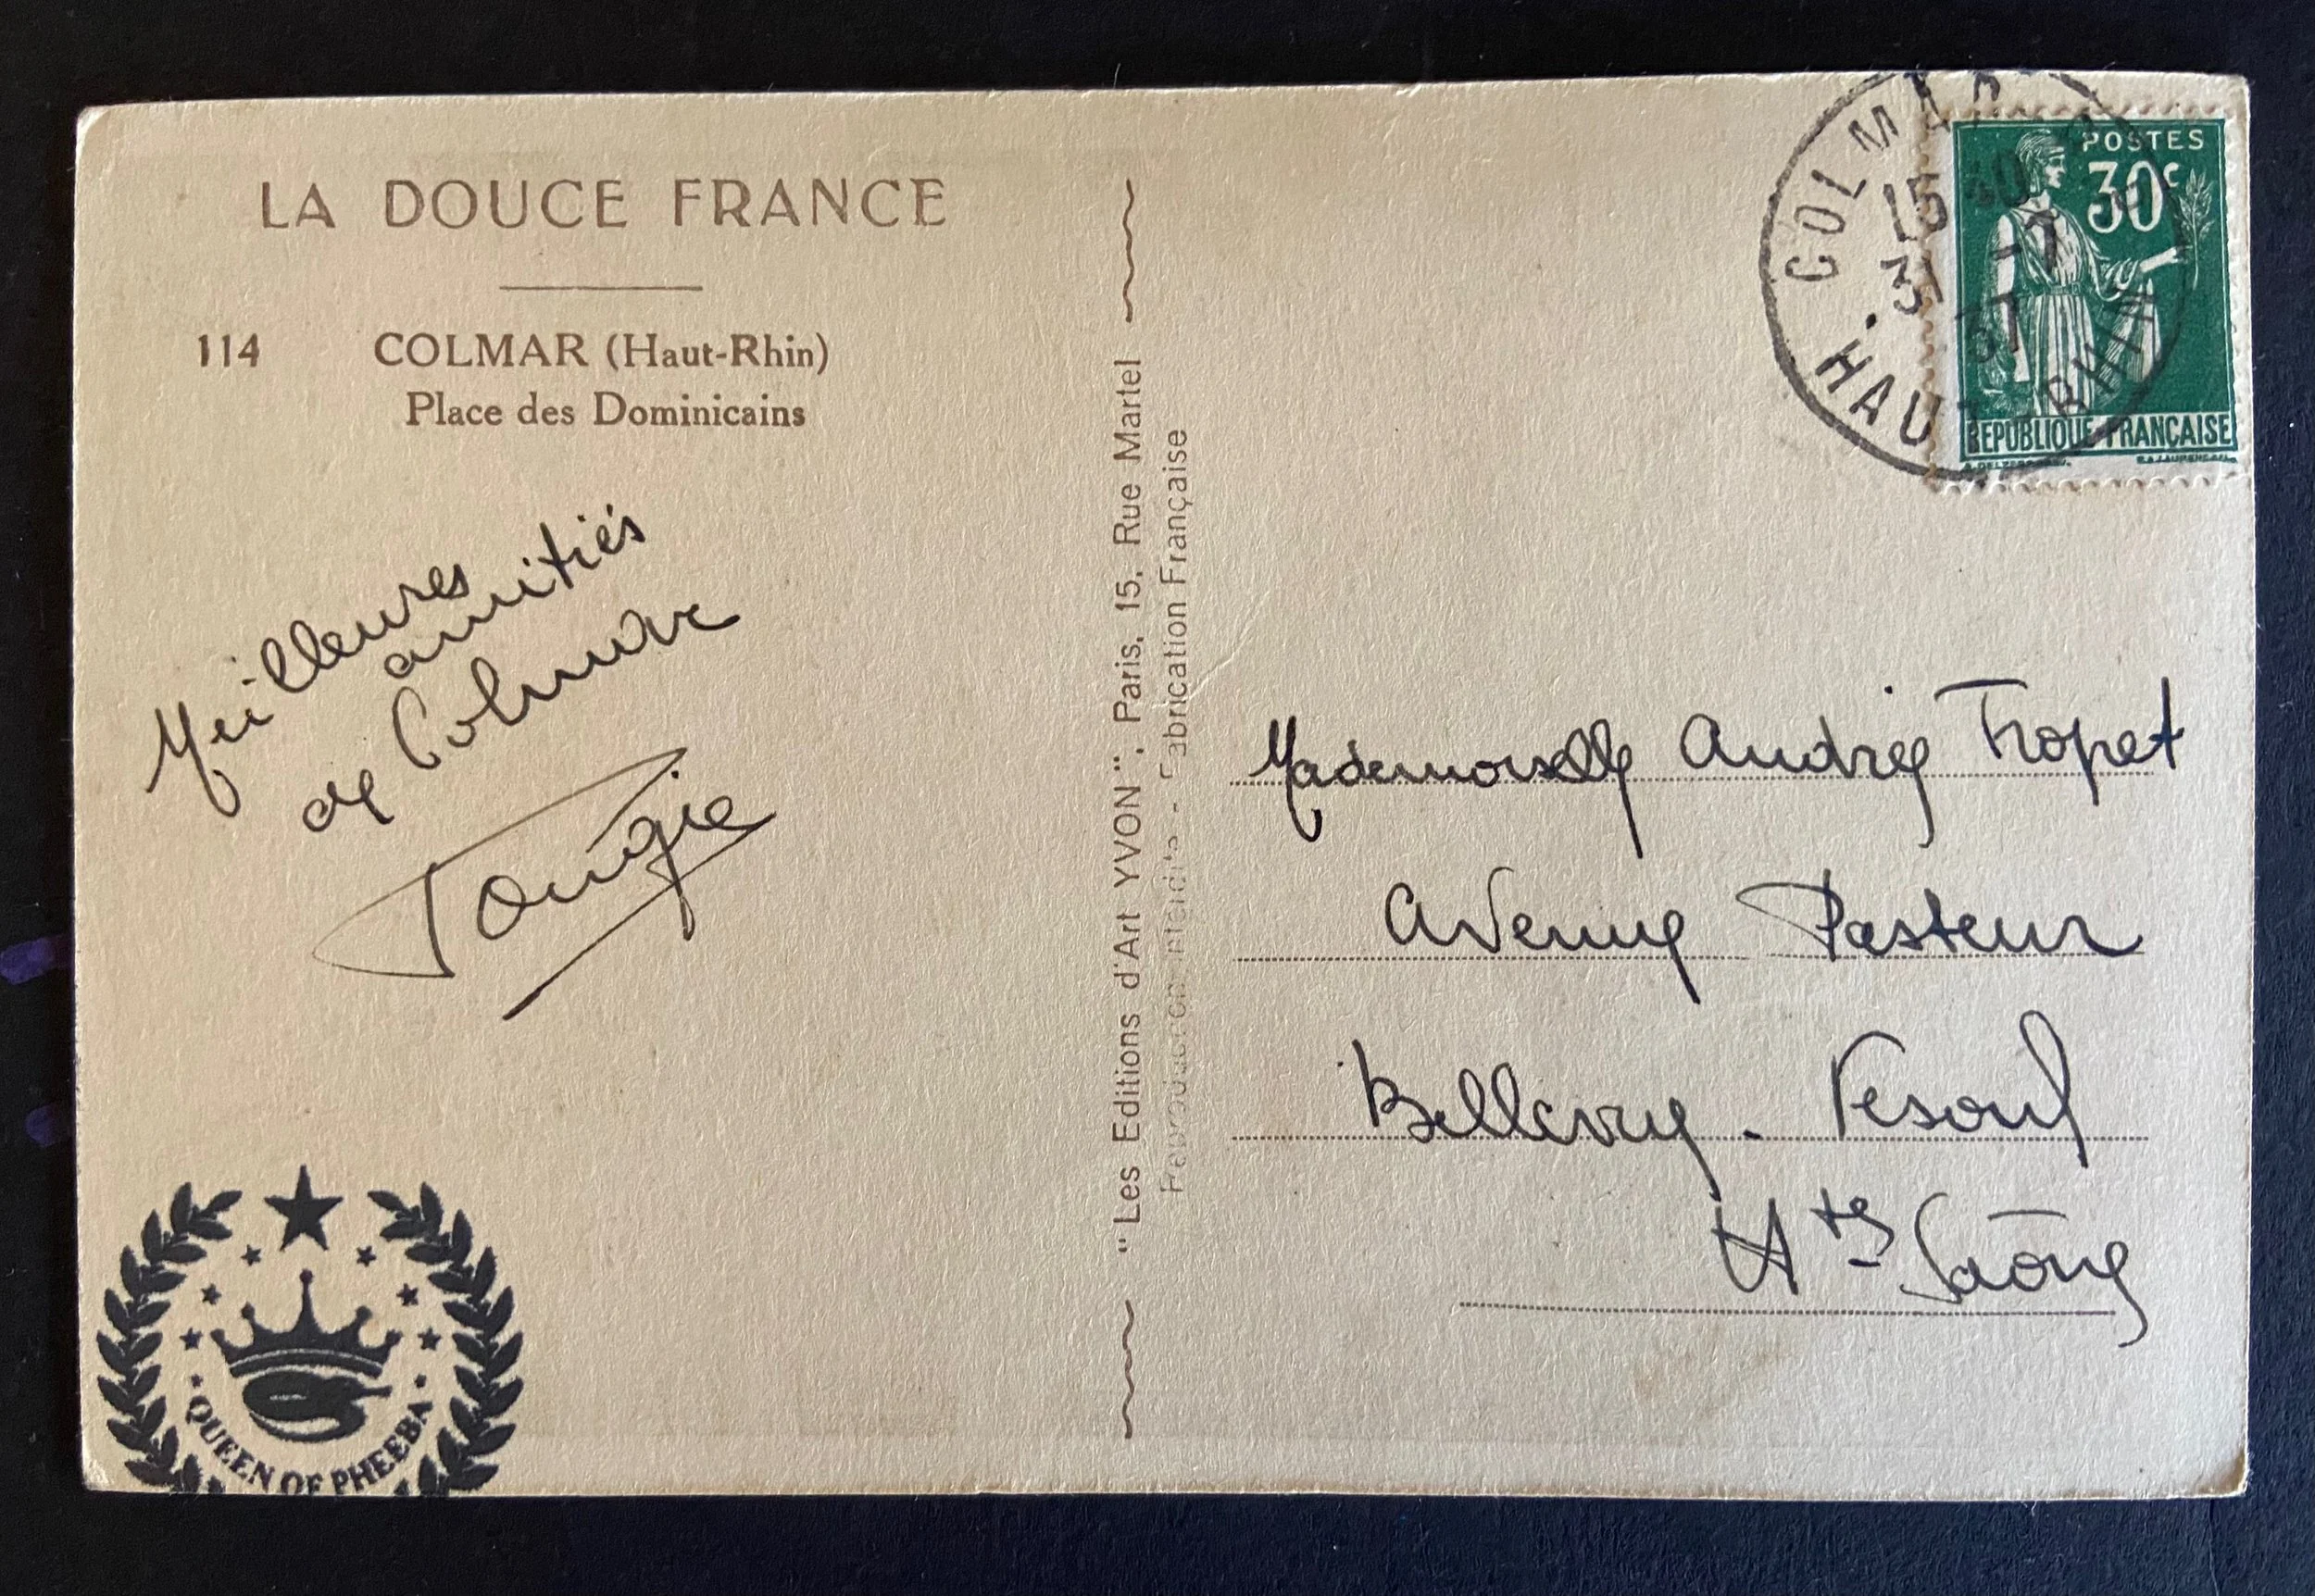 LA DOUCE FRANCE
114 COLMAR (Haut-Rhin)
Place des Dominicains
Meilleures
amitiés
de Colmar
"Les Editions d'Art YVON", Paris, 15, Rue Martel
Reproduction interdite - Fabrication Française
COLMAR
15 40
3 -7
37
HAUT-RHIN
POSTES
30c
REPUBLIQUE FRANÇAISE
Mademoiselle Andrée Tropet
Avenue Pasteur
Bellevue - Vesoul
Hte Saône
QUEEN OF PHEEBA